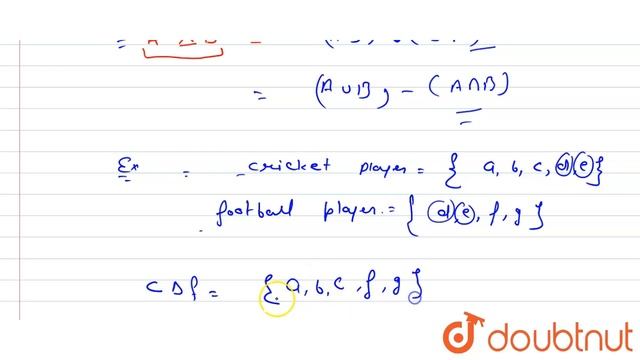 = (A ∪ B) - (A ∩ B)
=
Ex : cricket player = { a, b, c, d, e }
football player = { d, e, f, g }
C Δ f = { a, b, c, f, g }
doubtnut